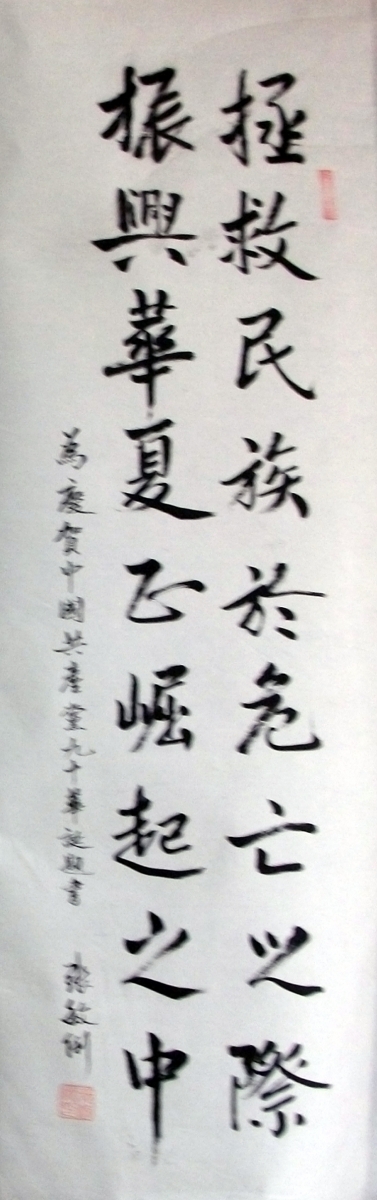 拯救民族於危亡之際
振興華夏正崛起之中
為慶賀中國共產黨九十華誕題書 張敏